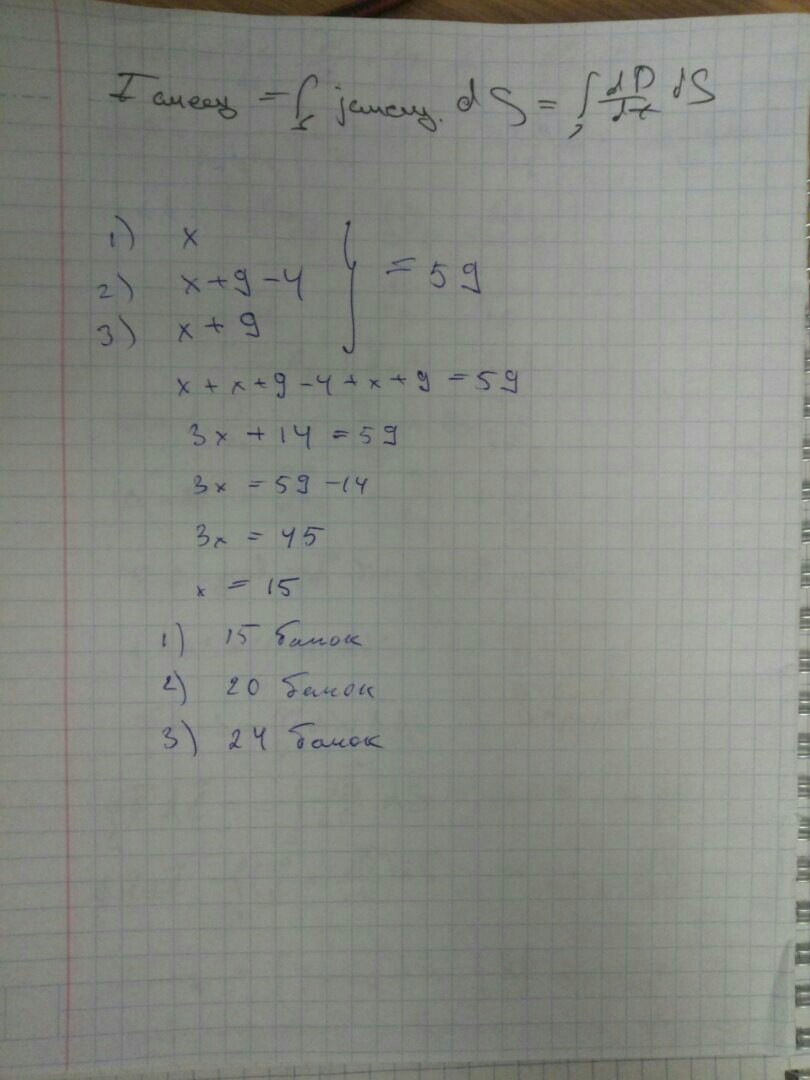 I смещ = ∫ jсмещ. dS = ∫ dD/dt dS
1) x
2) x+9-4 } = 59
3) x+9
x+x+9-4+x+9=59
3x+14=59
3x=59-14
3x=45
x=15
1) 15 банок
2) 20 банок
3) 24 банок